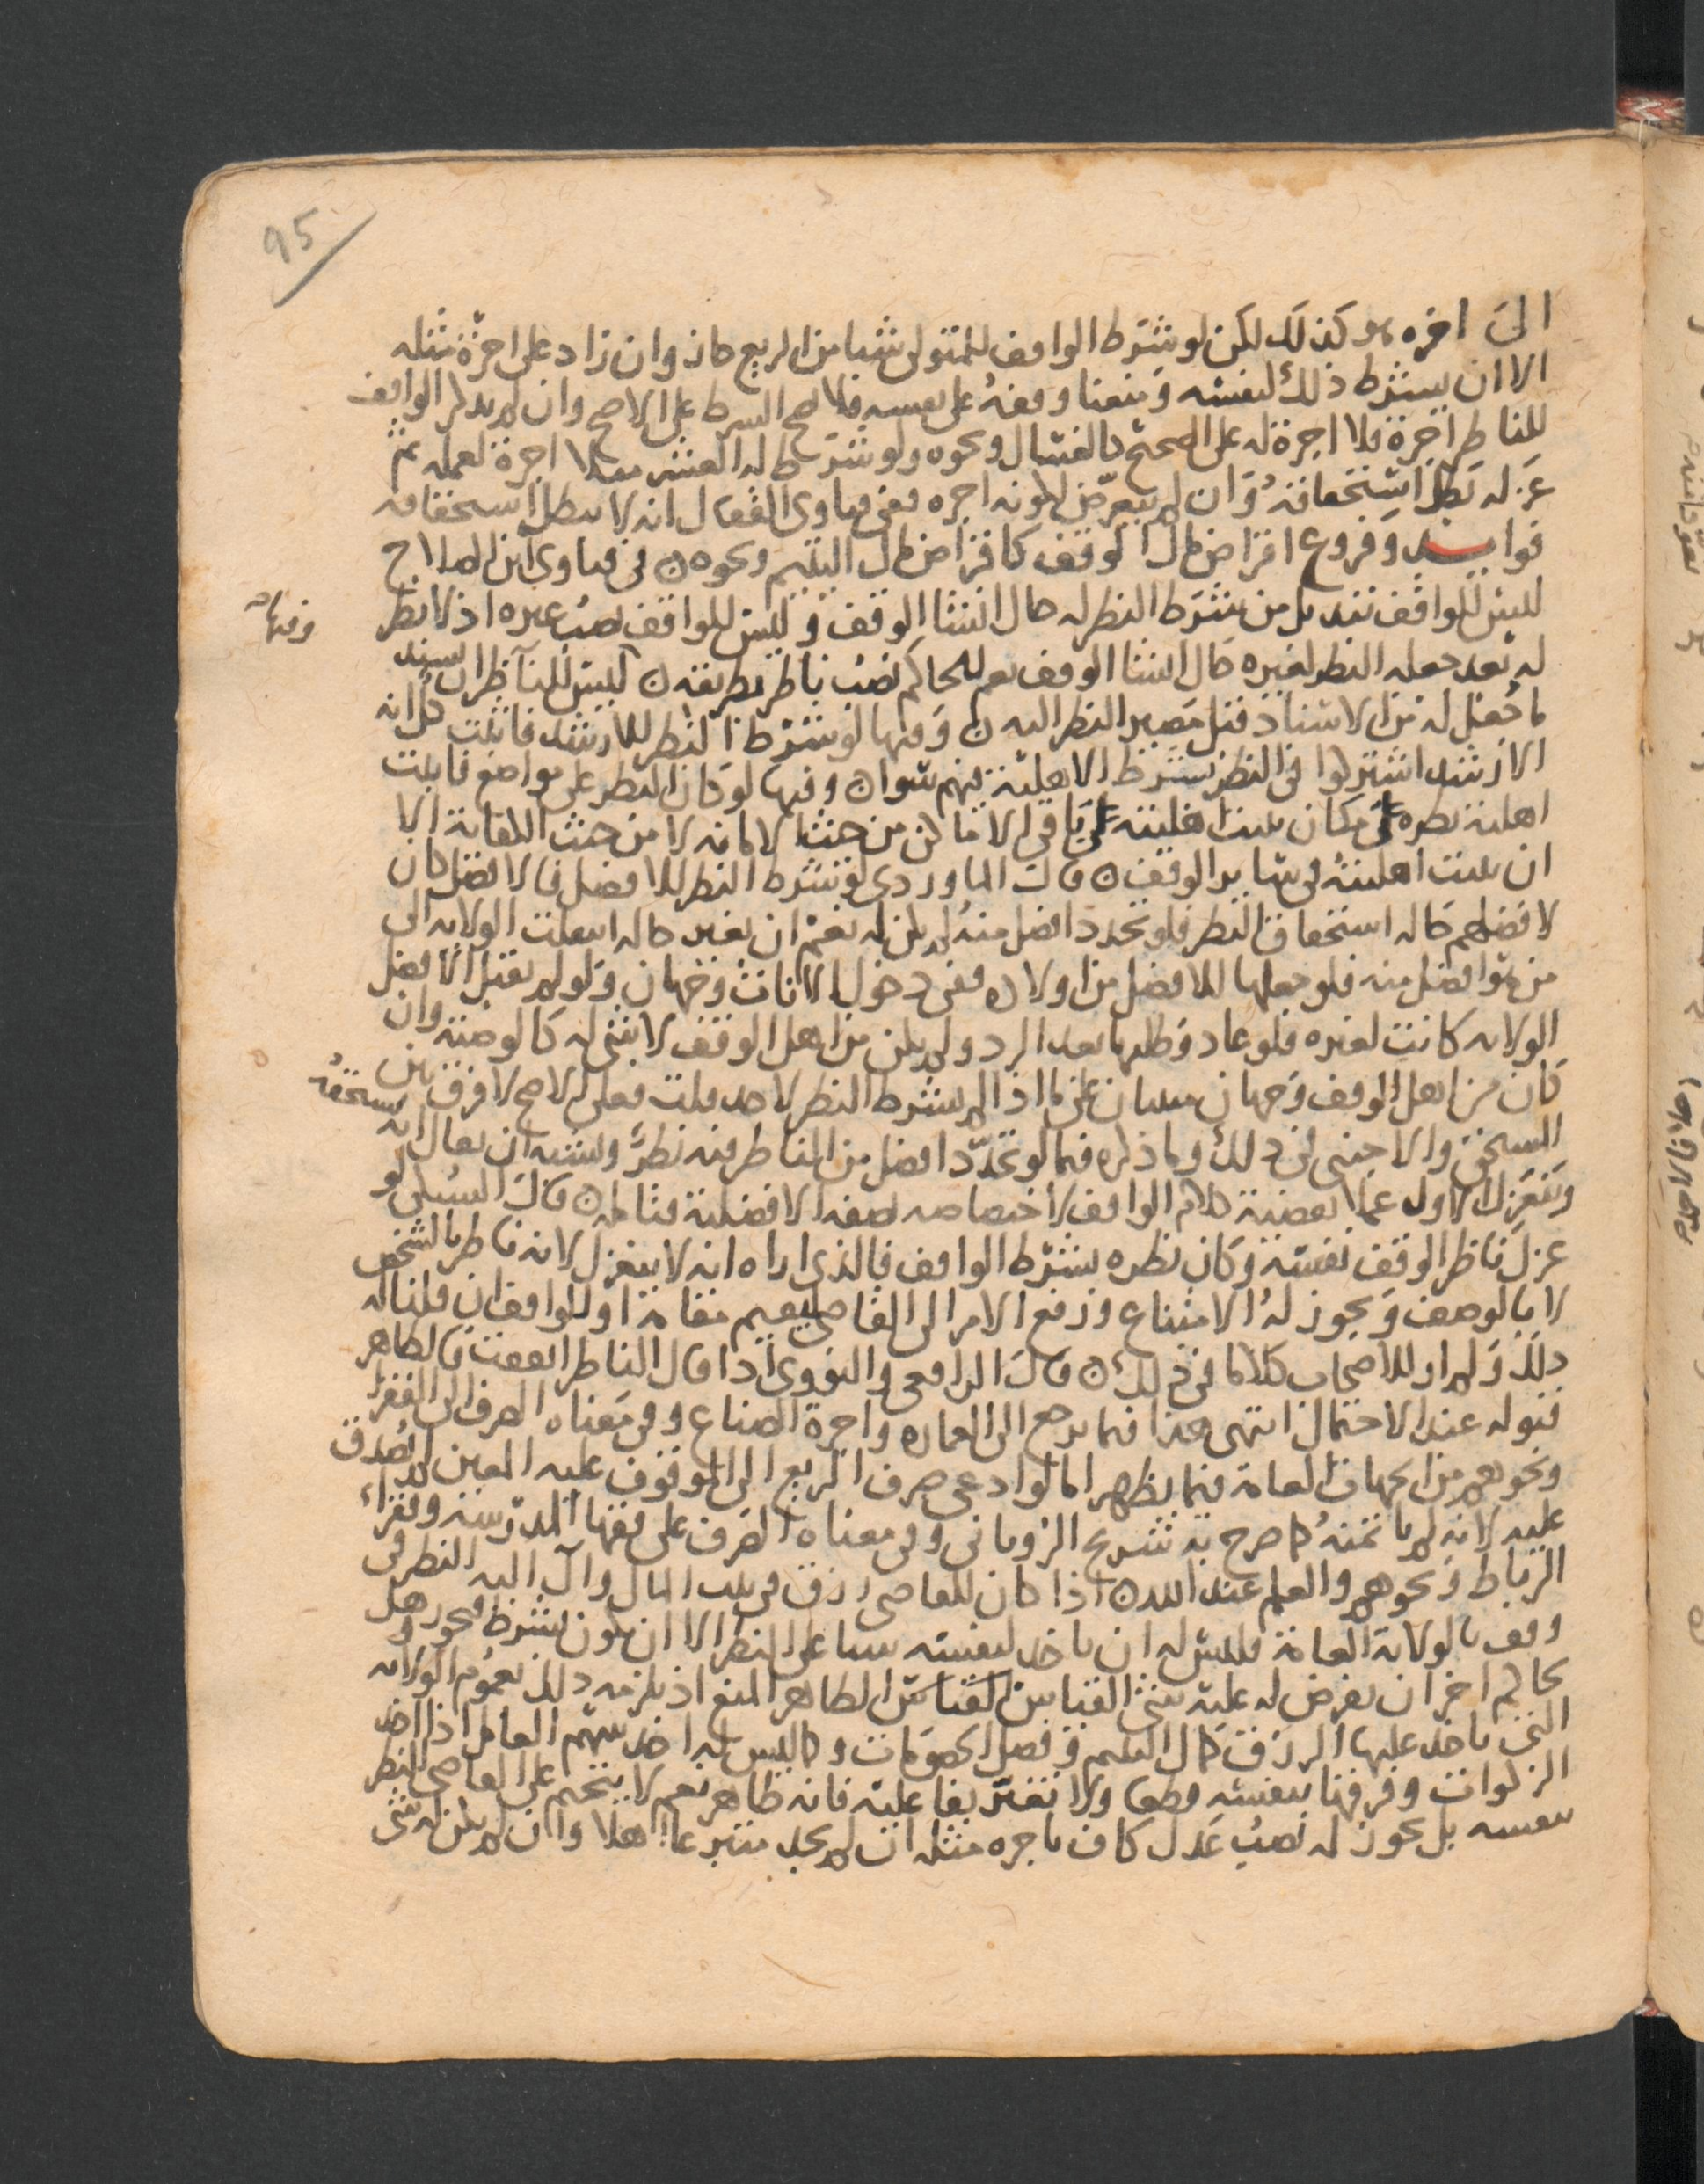 95
الى اخره هو كذلك لكن لو شرط الواقف للمتولي شيا من الريع جاز وان زاد على اجرة مثله
الا ان يشترط ذلك لنفسه ومنعنا وقفه على نفسه فلا يصح الشرط على الاصح وان لم يذكر الواقف
للناظر اجرة فلا اجرة له على الصحيح كالغسال ونحوه ولو شرط له العشر مثلا اجرة لعمله ثم
عزله بطل استحقاقه وان لم يتعرض لكونه اجره ففي فتاوى القفال انه لا يبطل استحقاقه
فوايد وفروع اقراض مال الوقف كاقراض مال اليتيم ونحوه ن في فتاوى ابن الصلاح
ليس للواقف تبديل من شرط النظر له حال انشا الوقف وليس للواقف نصب غيره اذ لا نظر
له بعد جعله النظر لغيره حال انشا الوقف نعم للحاكم نصب ناظر بطريقه ن ليس للناظر ان يسند
ما جعل له من الاسناد قبل مصير النظر اليه ن وفيها لو شرط النظر للارشد فاثبت كل انه
الارشد اشتركوا في النظر بشرط الاهلية فيهم سوا ن وفيها لو كان النظر على مواضع فاثبت
اهلية نظره على مكان ثبتت اهليته على باقي الاماكن من حيث الامانه لا من حيث الكفاية الا
ان تثبت اهليته في ساير الوقف ن قال الماوردي لو شرط النظر للافضل فالافضل كان
لافضلهم حاله استحقاق النظر فلو تجدد افضل منه لم يكن له نعم ان تغير حاله انتقلت الولايه الى
من هو افضل منه فلو جعلها للافضل من اولاده ففي دخول الاناث وجهان ولو لم يقبل الافضل
الولايه كانت لغيره فلو عاد وطلبها بعد الرد ولم يكن من اهل الوقف لا شي له كالوصية وان
كان من اهل الوقف وجهان مبنيان على ما اذا لم يشرط النظر لاحد قلت فعلى الاصح لا فرق بين
المستحق والاجنبي في ذلك وما ذكره فيما لو تجدد افضل من الناظر فيه نظر ويشبه ان يقال انه يستحقه
وينعزل الاول عملا بقضية كلام الواقف لاختصاصه بصفة الافضلية فتامله ن قال السبكي لو
عزل ناظر الوقف نفسه وكان نظره بشرط الواقف فالذي اراه انه لا ينعزل لانه ناظر بالشخص
لا بالوصف ويجوز له الامتناع ورفع الامر الى القاضي ليقيم مقامه او للواقف ان قلنا له
ذلك ولم ار للاصحاب كلاما في ذلك ن قال الرافعي والنووي اذا قال الناظر انفقت فالظاهر
قبوله عند الاحتمال انتهى هذا فيما يرجع الى العماره واجرة الصناع وفي معناه الصرف الى الفقرا
ونحوهم من الجهات العامة فيما يظهر اما لو ادعى صرف الريع الى الموقوف عليه المعين لم يصدق
عليه لانه لم ياتمنه كما صرح به شريح الروياني وفي معناه الصرف على فقها المدرسة وفقراء
الرباط ونحوهم والعلم عند الله ن اذا كان للقاضي رزق في بيت المال وآل اليه النظر في
وقف بالولاية العامة فليس له ان ياخذ لنفسه شيا على النظر الا ان يكون بشرط وتجوز هل
لحاكم اخر ان يفرض له عليه شي القياس الظاهر المنع اذ يلزمه ذلك بعموم الولايه
التي ياخذ عليها الرزق كمال اليتيم وفصل الخصومات وكما ليس له اخذ سهم العامل اذا اخذ
الزكوات وفرقها بنفسه وطعا ولا تغتر بفا عليه فانه ظاهر نعم لا يتحتم على القاضي النظر
بنفسه بل يجوز له نصب عدل كاف باجره مثله ان لم يجد متبرعا اهلا وان لم يكن له شي
وفيها